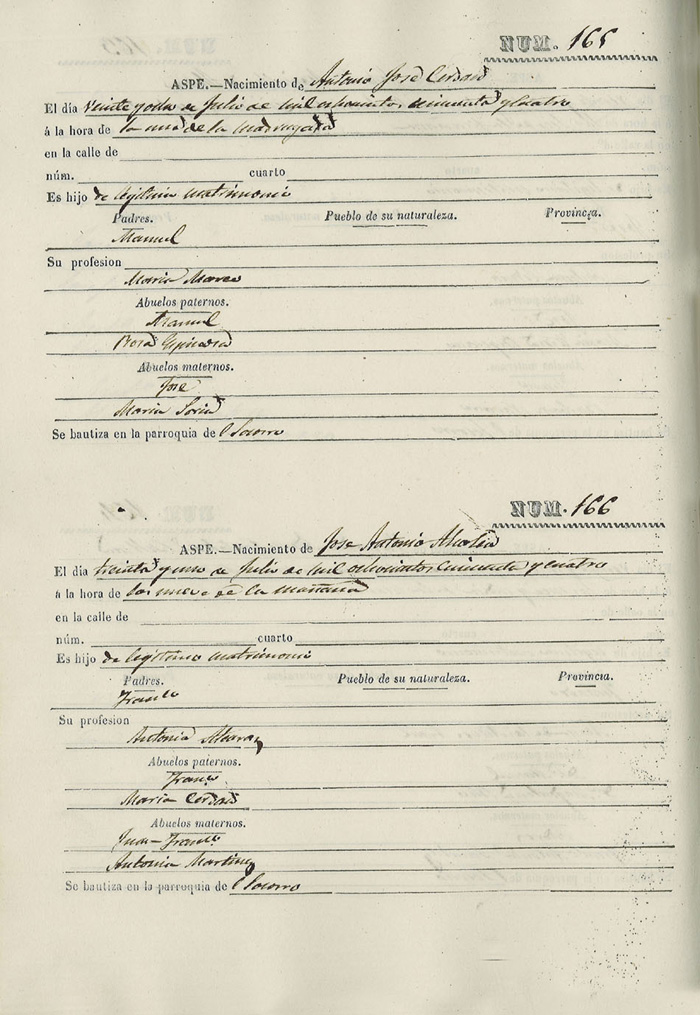 NUM. 165
ASPE.—Nacimiento de Antonio José Cerdan
El día veinte y de Julio de mil ochocientos cincuenta y cuatro
á la hora de la una de la madrugada
en la calle de
núm. cuarto
Es hijo de legitimo matrimonio
Padres. Pueblo de su naturaleza. Provincia.
Manuel
Su profesion
Maria
Abuelos paternos.
Manuel
Rosa
Abuelos maternos.
Jose
Maria Soria
Se bautiza en la parroquia de l Socorro
NUM. 166
ASPE.—Nacimiento de Jose Antonio
El día treinta y uno de Julio de mil ochocientos cincuenta y cuatro
á la hora de las nueve de la mañana
en la calle de
núm. cuarto
Es hijo de legitimo matrimonio
Padres. Pueblo de su naturaleza. Provincia.
Franco
Su profesion
Antonia
Abuelos paternos.
Franco
Maria Cerdan
Abuelos maternos.
Juan Franco
Antonia Martinez
Se bautiza en la parroquia de l Socorro